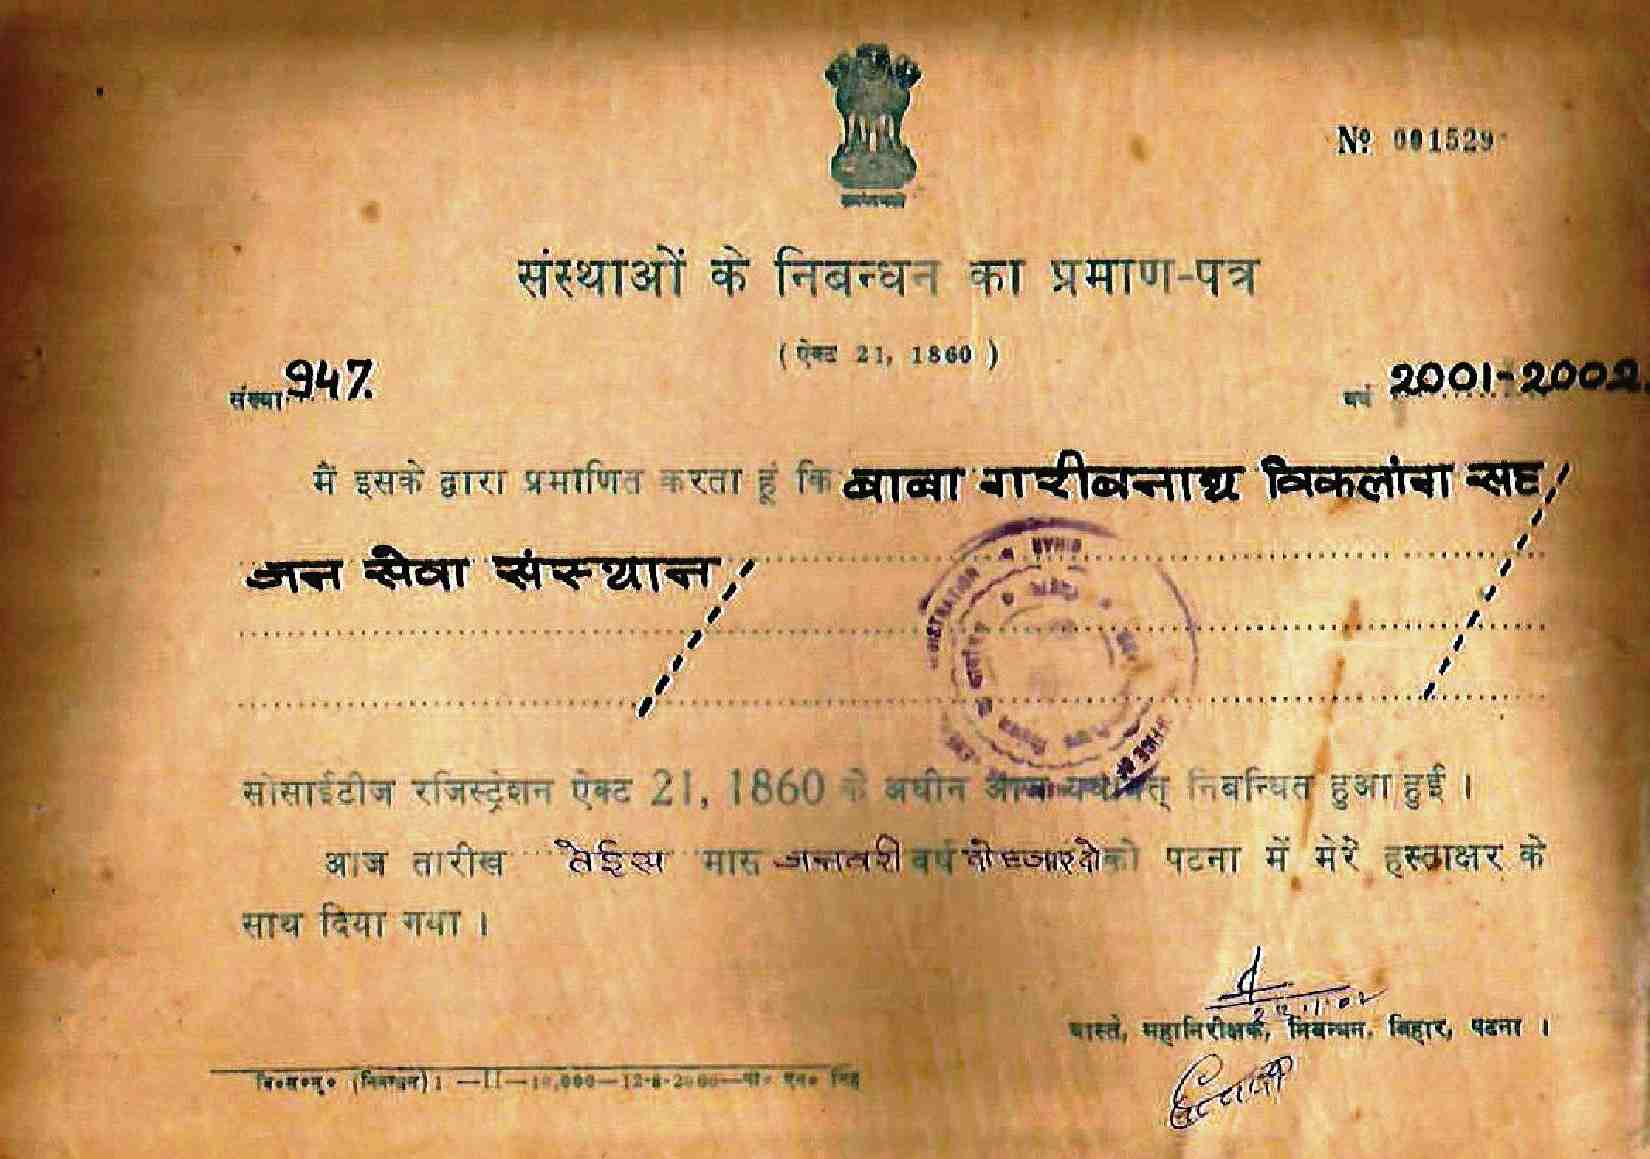 № 001529
संस्थाओं के निबन्धन का प्रमाण-पत्र
( ऐक्ट 21, 1860 )
संख्या 947. वर्ष 2001-2002.
मैं इसके द्वारा प्रमाणित करता हूं कि बाबा गरीबनाथ विकलांग सह
जन सेवा संस्थान
सोसाईटीज रजिस्ट्रेशन ऐक्ट 21, 1860 के अधीन आज यथावत् निबन्धित हुआ हुई ।
आज तारीख तेईस मास जनवरी वर्ष दो हजार दो को पटना में मेरे हस्ताक्षर के
साथ दिया गया ।
वास्ते, महानिरीक्षक, निबन्धन, बिहार, पटना ।
(निबन्धन) 1 —II—10,000—
REGISTRATION BIHAR